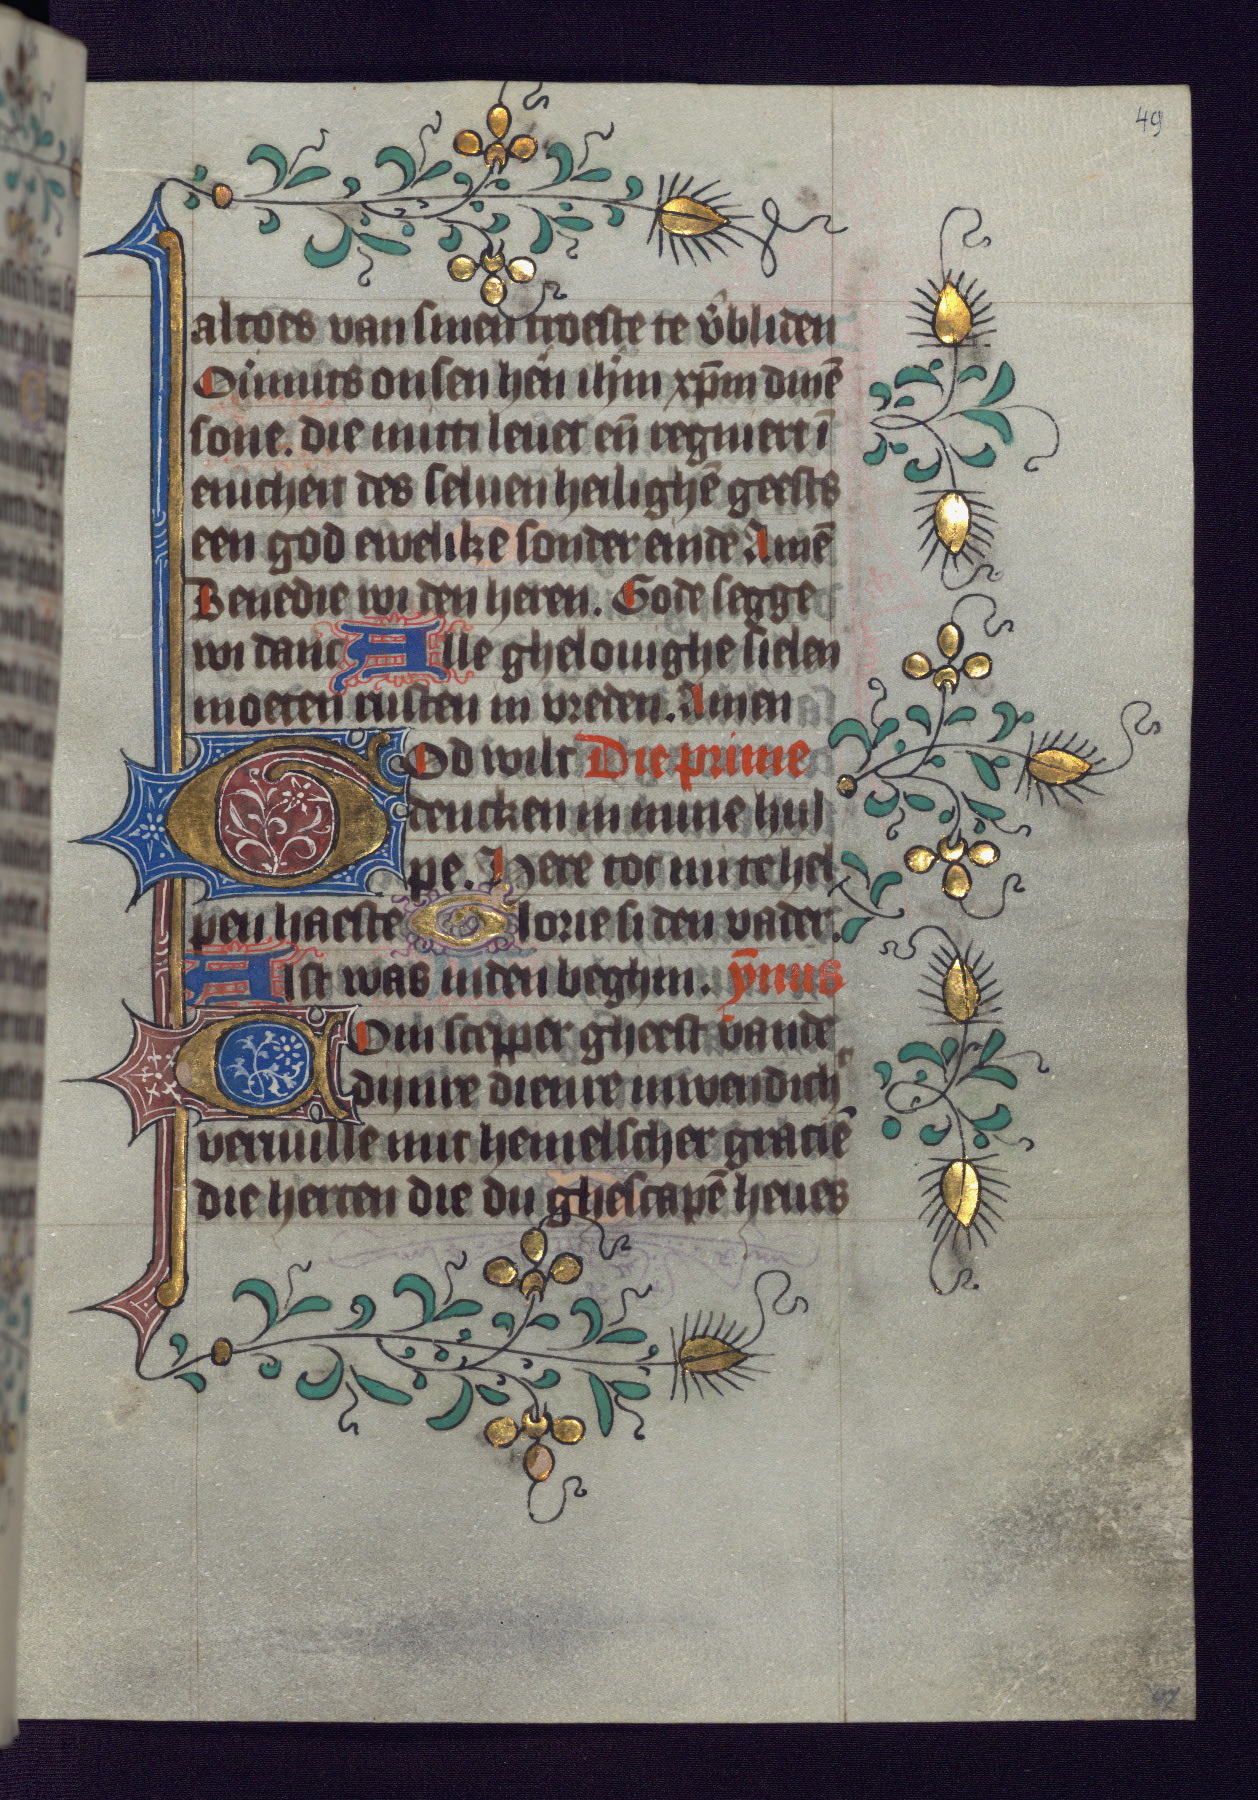 49
altoes van sinen troeste te v̄bliden
Ouimits onsen hēn ihm̄ xp̄m dinē
sone. die mitti leuet en̄ regniert ī
enicheit des seluen heilighē geests
een god ewelike sonder einde Amē
Benedie wi den heren. Gode segge
wi danc Alle ghelouighe sielen
moeten rusten in vreden. Amen
GOd wilt Die prime
dencken in mine hul
pe. Here tot mi te hel
pen haeste Glorie si den vader.
Alst was inden beghin. ym̄us
COm scepper gheest vande
dijnre dienre inwendich
veruulle mit hemelscher gratiē
die herten die du ghescapē heues